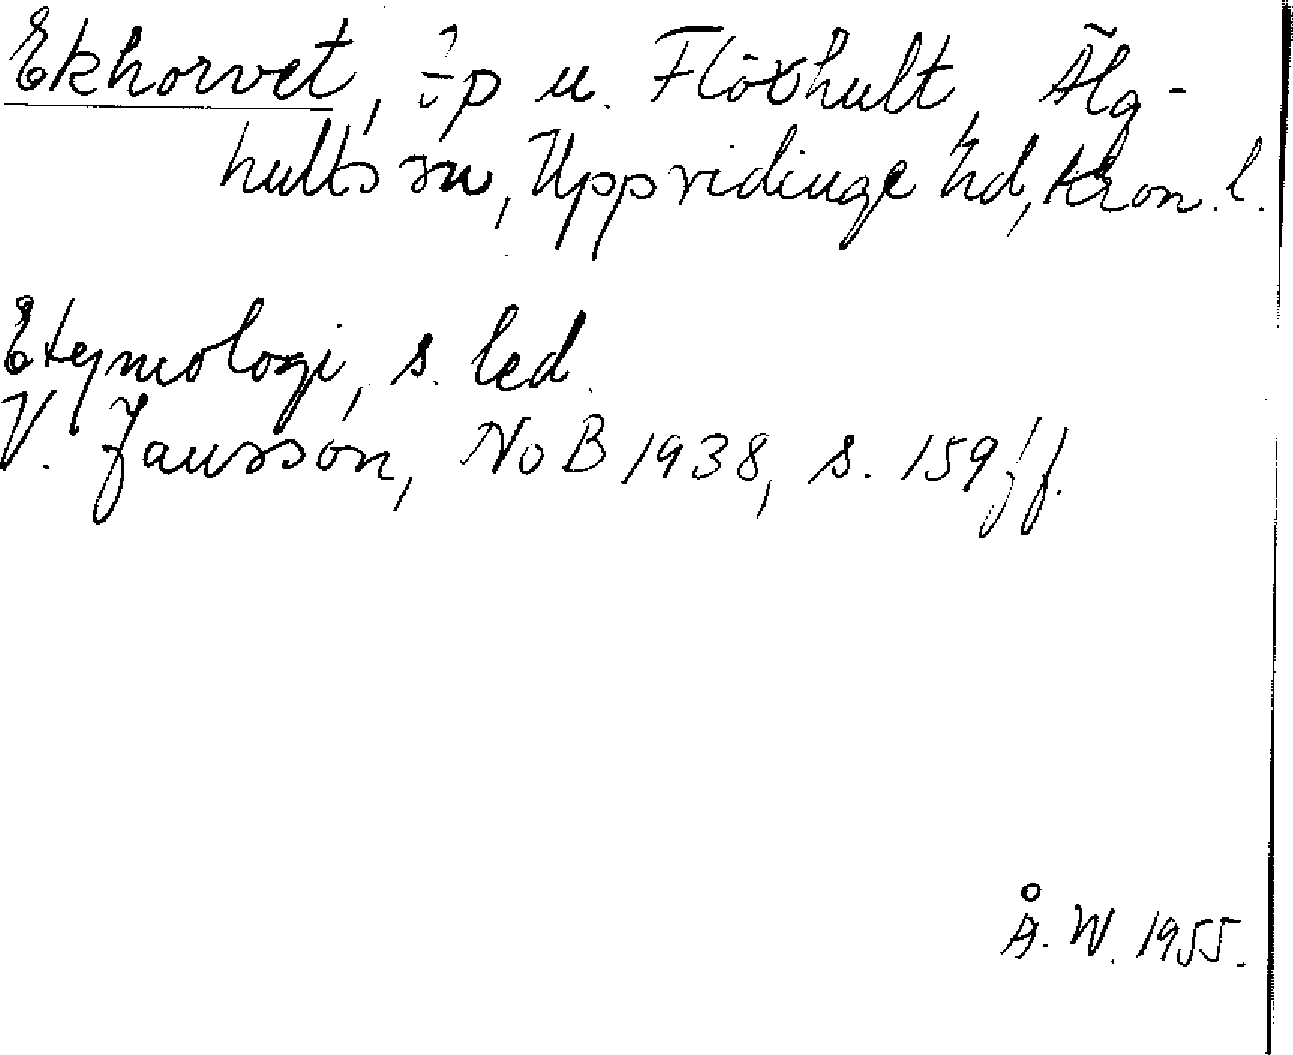 Ekhorvet, tp u. Flöxhult, Älg-
hults sn, Uppvidinge hd, Kron. l.
Etymologi, s. led.
V. Jansson, NoB 1938, s. 159 ff.
Å. W. 1955.